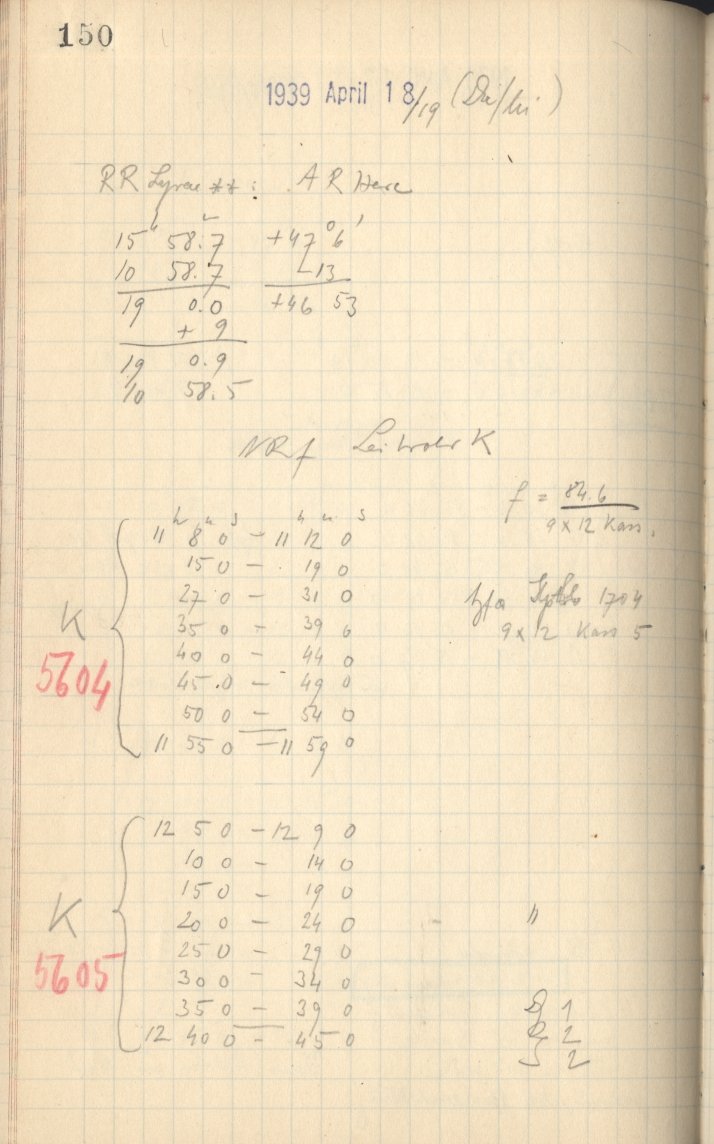 150
1939 April 18/19 (Di/Mi)
RR Lyrae **: AR Herc
15h 58.7 +47° 6'
10 58.7 -13
19 0.0 +46 53
+ 9
19 0.9
10 58.5
NRf Leitrohr K
f = 84.6
9 x 12 Kass.
K
5604
h m s h m s
11 8 0 - 11 12 0
15 0 - 19 0
27 0 - 31 0
35 0 - 39 0
40 0 - 44 0
45 0 - 49 0
50 0 - 54 0
11 55 0 - 11 59 0
1704
9 x 12 Kass 5
K
5605
12 5 0 - 12 9 0
10 0 - 14 0
15 0 - 19 0
20 0 - 24 0
25 0 - 29 0
30 0 - 34 0
35 0 - 39 0
12 40 0 - 45 0
"
1
2
2